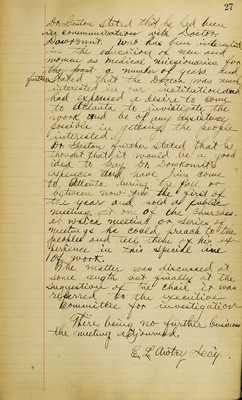 27
Dr. Sexton stated that he had been
in communication with Doctor
Dowkonntt. Who has been interested
in the education of men and
women as medical missionaries for
the past a number of years and
further stated that the Doctor was much
interested in our institution and
had expressed a desire to come
to Atlanta to investigate the
work and be of any assistance
possible in getting the people
interested.
Dr. Sexton further stated that he
thought that it would be a good
idea to pay Dr. Dowkonntt's
expences and have him come
to Atlanta during the
between now and the first of
the year and hold a public
meeting at one of the churches.
at which meeting or series of
meetings he could preach to the
peoples and tell them of his ex-
perience in this special line
of work.
The matter was discussed at
some length but finally at the
suggestion of the chair it was
referred to the executive
committee for investigation
There being no further business
the meeting adjourned.
E. L. Awtry Secy.